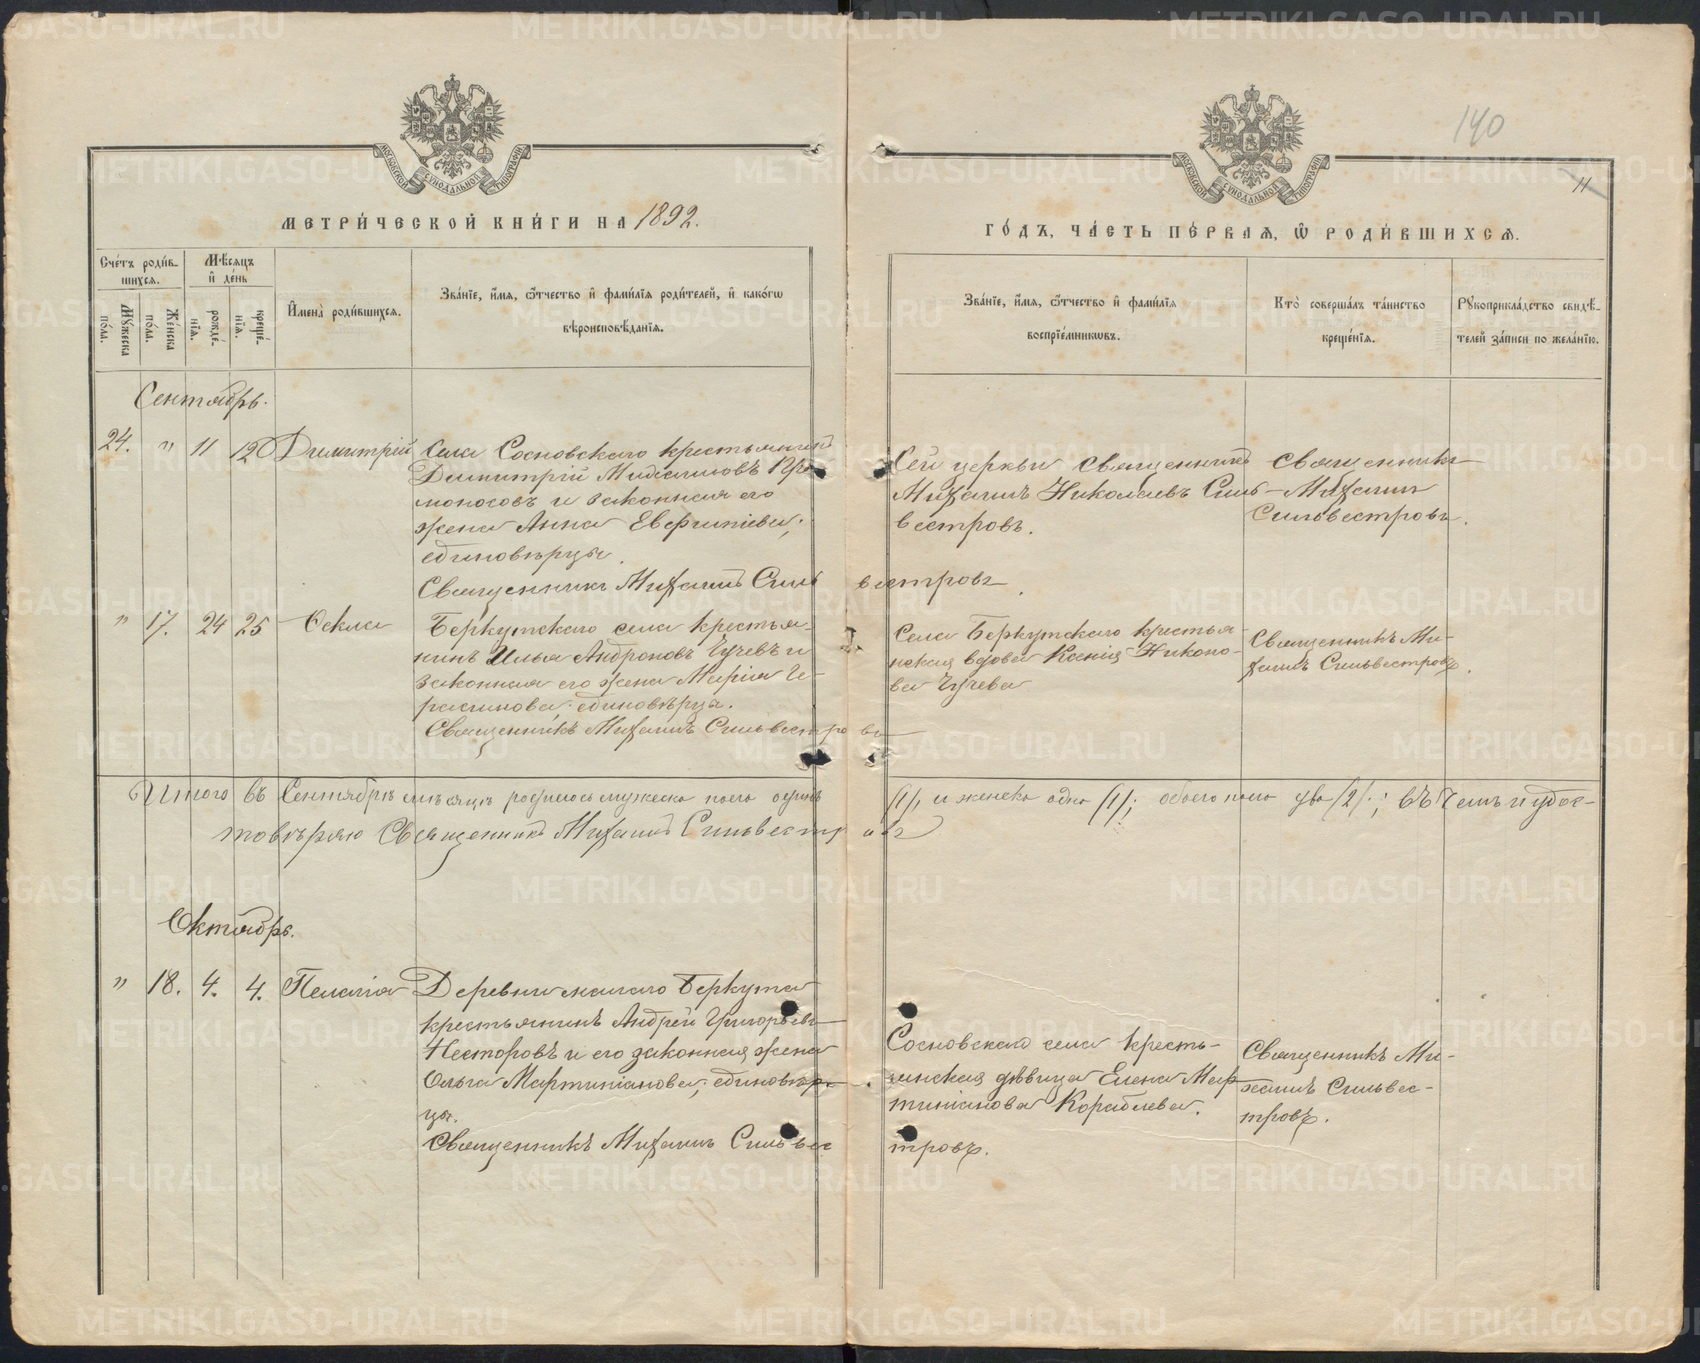 140
11
МОСКОВСКОЙ СѴНОДАЛЬНОЙ ТИПОГРАФІИ
МОСКОВСКОЙ СѴНОДАЛЬНОЙ ТИПОГРАФІИ
МЕТРИ́ЧЕСКОЙ КНИ́ГИ НА 1892.
ГО́ДЪ, ЧА́СТЬ ПЕ́РВАЯ, Ѡ РОДИ́ВШИХСЯ.
Сче́тъ роди́в-
шихся.
Мѣ́сяцъ
и҆ де́нь
Мꙋ́жеска
по́ла.
Же́нска
по́ла.
рожде́-
нїя.
креще́-
нїя.
И҆мена̀ роди́вшихся.
Зва́нїе, и҆́мя, ѻ҆́тчество и҆ фами́лїя роди́телей, и҆ како́гѡ
вѣроисповѣ́данїя.
Зва́нїе, и҆́мя, ѻ҆́тчество и҆ фами́лїя
воспрїе́мникѡвъ.
Кто̀ соверша́лъ та́инство
креще́нїя.
Рꙋкоприкла́дство свидѣ́-
телей за́писи по жела́нїю.
Сентябрь.
24. " 11 12 Димитрій
Села Сосновскаго крестьянинъ
Димитрій Михаиловъ
моносовъ и законная его
жена Анна Евфиміева;
единовѣрцы.
Священникъ Михаилъ Сильвестровъ
Сей церкви священникъ
Михаилъ Николаевъ Силь-
вестровъ.
Священникъ
Михаилъ
Сильвестровъ.
" 17. 24 25 Ѳекла
Беркутскаго села крестья-
нинъ Илья Андроновъ Чучевъ и
законная его жена Марія Ге-
расимова. единовѣрцы.
Священникъ Михаилъ Сильвестровъ
Села Беркутскаго крестья-
нская вдова Ксенія Никоно-
ва Чучева
Священникъ Ми-
хаилъ Сильвестровъ.
Итого въ Сентябрѣ мѣсяцѣ родилось мужеска пола одинъ /1/, и женска одна /1/; обоего пола два /2/.; въ чемъ и удос-
товѣряю Священникъ Михаилъ Сильвестровъ
Октябрь.
" 18. 4. 4. Пелагія
Деревни малаго Беркута
крестьянинъ Андрей Григорьевъ
Несторовъ и его законная жена
Ольга Мартиніанова; единовѣр-
цы.
Священникъ Михаилъ Сильвестровъ.
Сосновскаго села кресть-
янская дѣвица Елена Мар-
тиніанова Кораблева.
Священникъ Ми-
хаилъ Сильвес-
тровъ.
METRIKI.GASO-URAL.RU